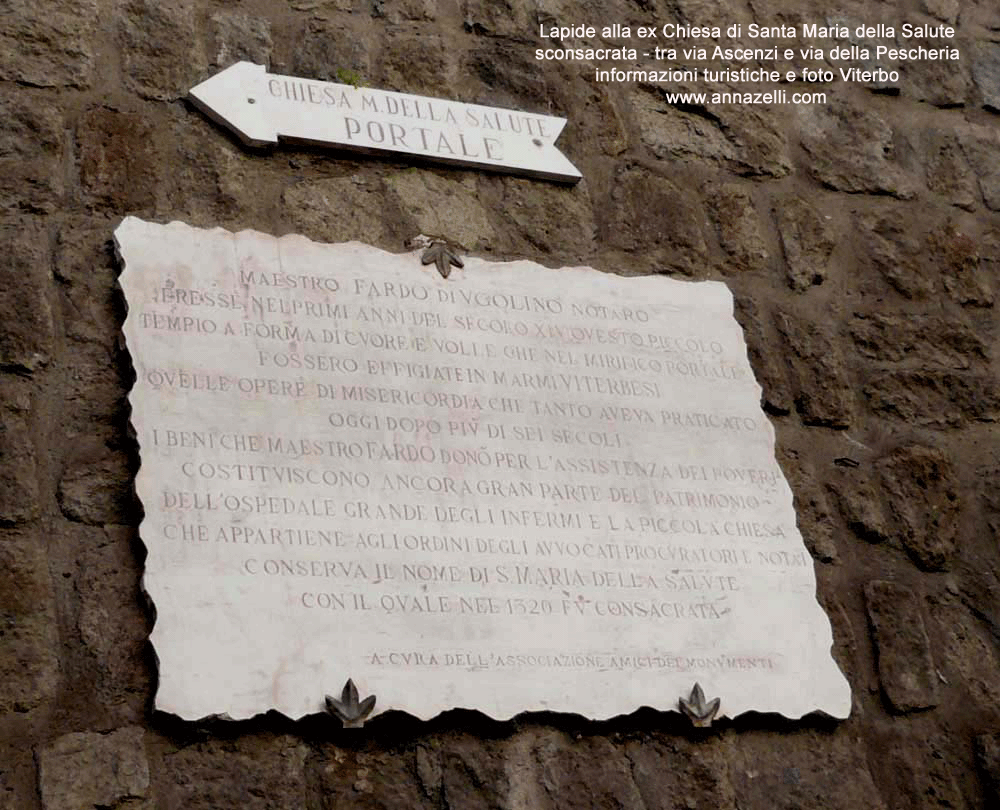 Lapide alla ex Chiesa di Santa Maria della Salute
sconsacrata - tra via Ascenzi e via della Pescheria
informazioni turistiche e foto Viterbo
www.annazelli.com
CHIESA M. DELLA SALUTE
PORTALE
MAESTRO FARDO DI VGOLINO NOTARO
ERESSE NEI PRIMI ANNI DEL SECOLO XIV QVESTO PICCOLO
TEMPIO A FORMA DI CVORE E VOLLE CHE NEL MIRIFICO PORTALE
FOSSERO EFFIGIATE IN MARMI VITERBESI
QVELLE OPERE DI MISERICORDIA CHE TANTO AVEVA PRATICATO
OGGI DOPO PIV DI SEI SECOLI
I BENI CHE MAESTRO FARDO DONÒ PER L'ASSISTENZA DEI POVERI
COSTITVISCONO ANCORA GRAN PARTE DEL PATRIMONIO
DELL'OSPEDALE GRANDE DEGLI INFERMI E LA PICCOLA CHIESA
CHE APPARTIENE AGLI ORDINI DEGLI AVVOCATI PROCVRATORI E NOTAI
CONSERVA IL NOME DI S. MARIA DELLA SALVTE
CON IL QVALE NEL 1320 FV CONSACRATA
A CVRA DELL'ASSOCIAZIONE AMICI DEI MONVMENTI